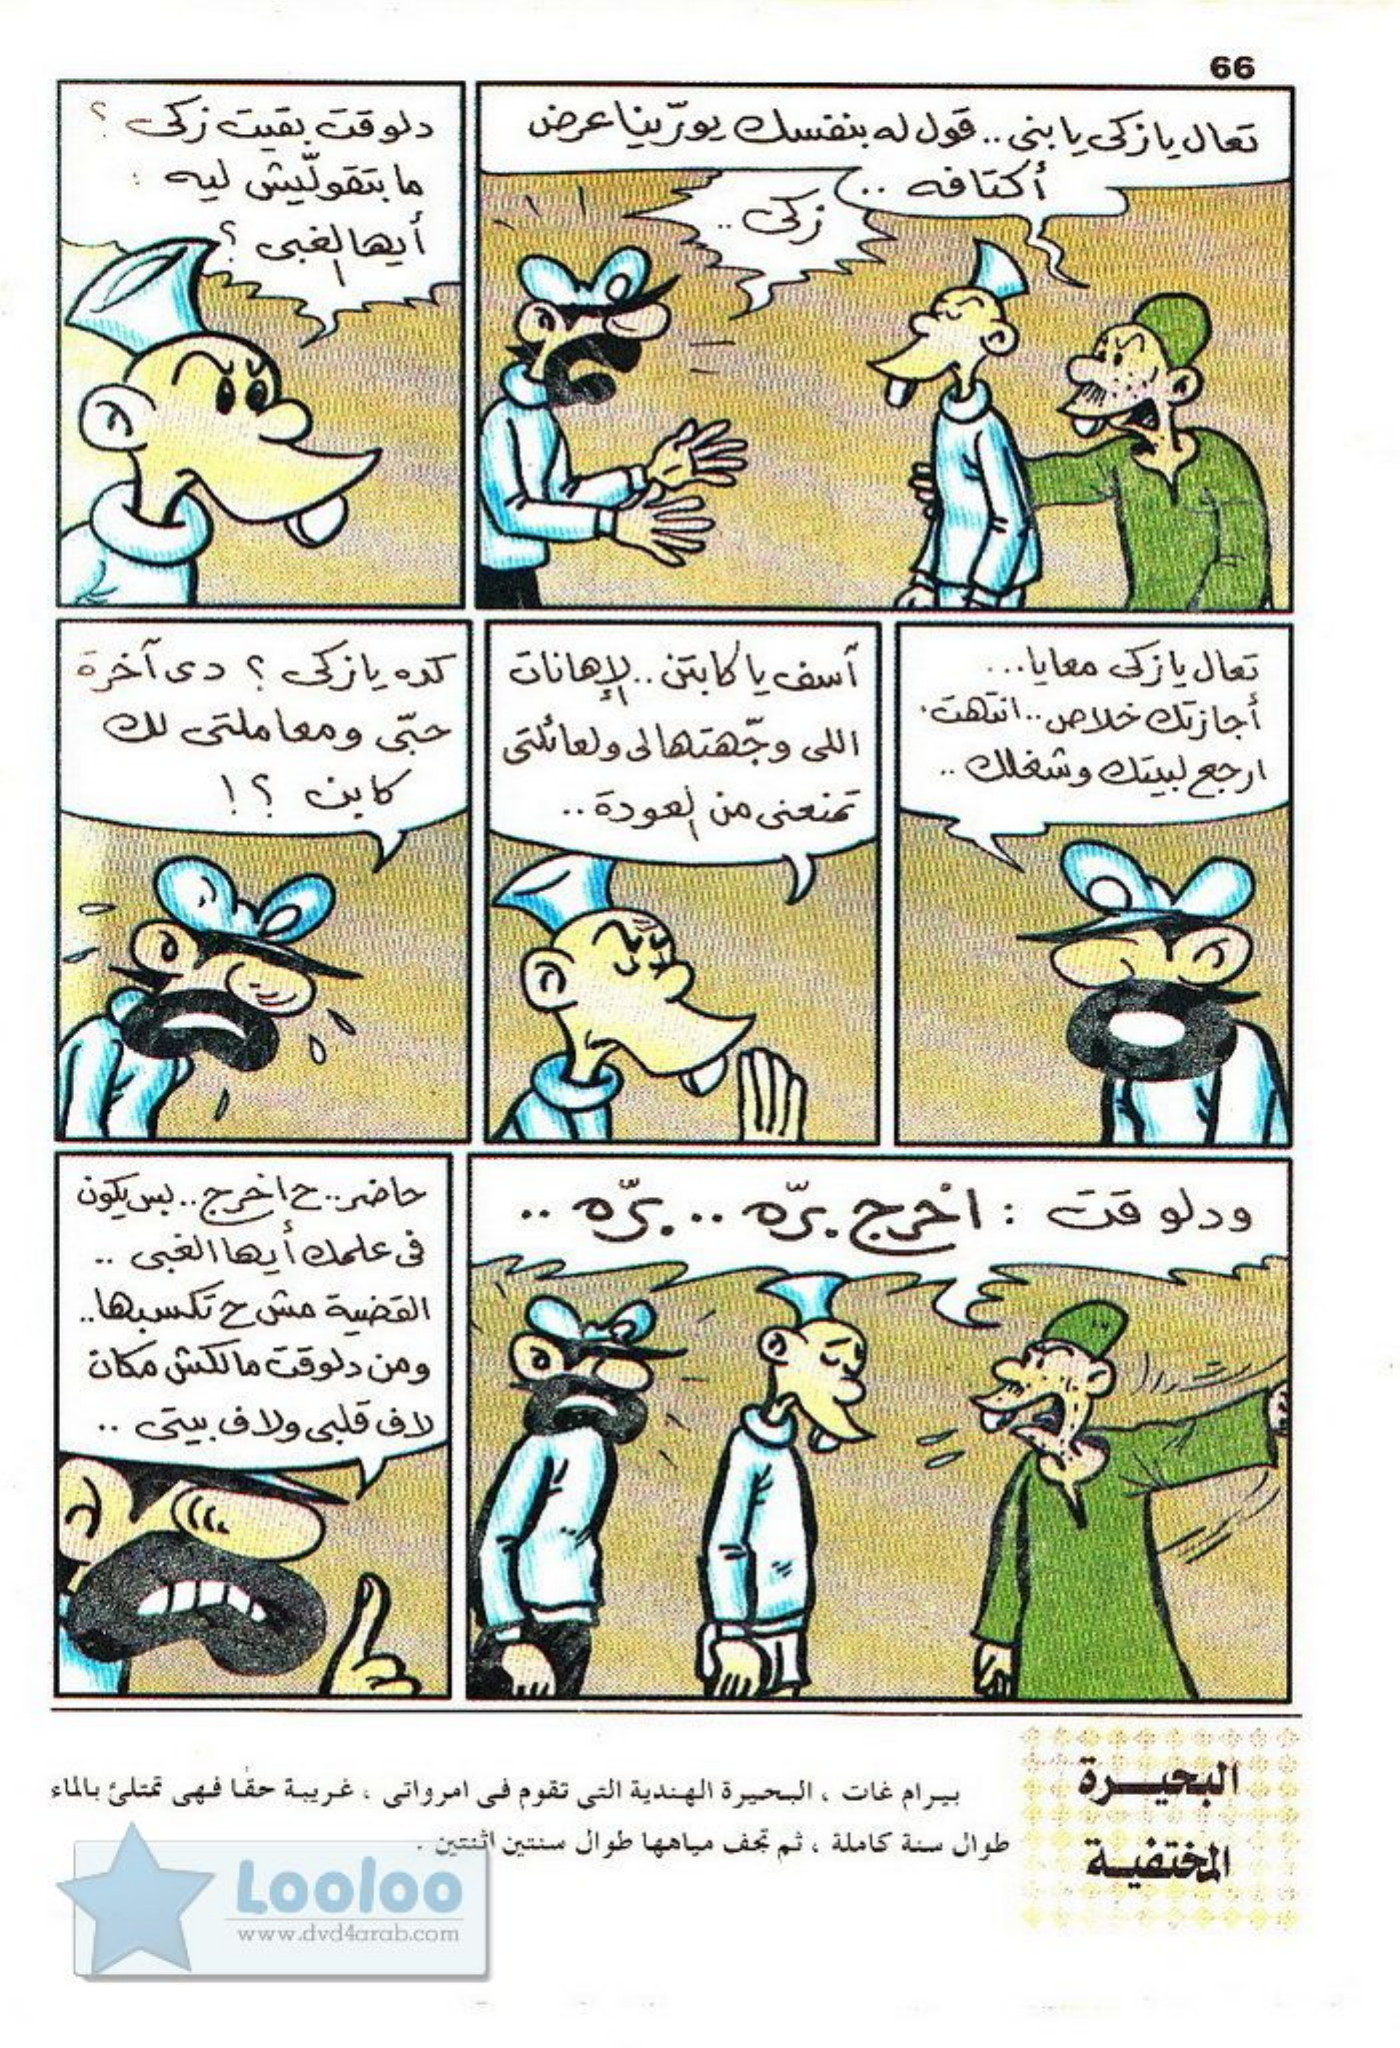 66
تعال يا زكى يا بنى .. قول له بنفسك يورّينا عرض
أكتافه ..
زكى ..
دلوقت بقيت زكى ؟
ما بتقوليّش ليه :
أيها الغبى ؟
تعال يا زكى معايا...
أجازتك خلاص .. انتهت،
ارجع لبيتك وشغلك ..
آسف يا كابتن .. الإهانات
اللى وجّهتها لى ولعائلتى
تمنعنى من العودة ..
كده يا زكى ؟ دى آخرة
حبّى ومعاملتى لك
كابن ؟ !
ودلوقت : اخرج برّه .. برّه ..
حاضر .. ح اخرج .. بس يكون
فى علمك أيها الغبى ..
القضية مش ح تكسبها ..
ومن دلوقت مالكش مكان
لا ف قلبى ولا ف بيتى ..
البحيرة
المختفية
بيرام غات ، البحيرة الهندية التى تقوم فى امرواتى ، غريبة حقًا فهى تمتلئ بالماء
طوال سنة كاملة ، ثم تجف مياهها طوال سنتين اثنتين .
Looloo
www.dvd4arab.com